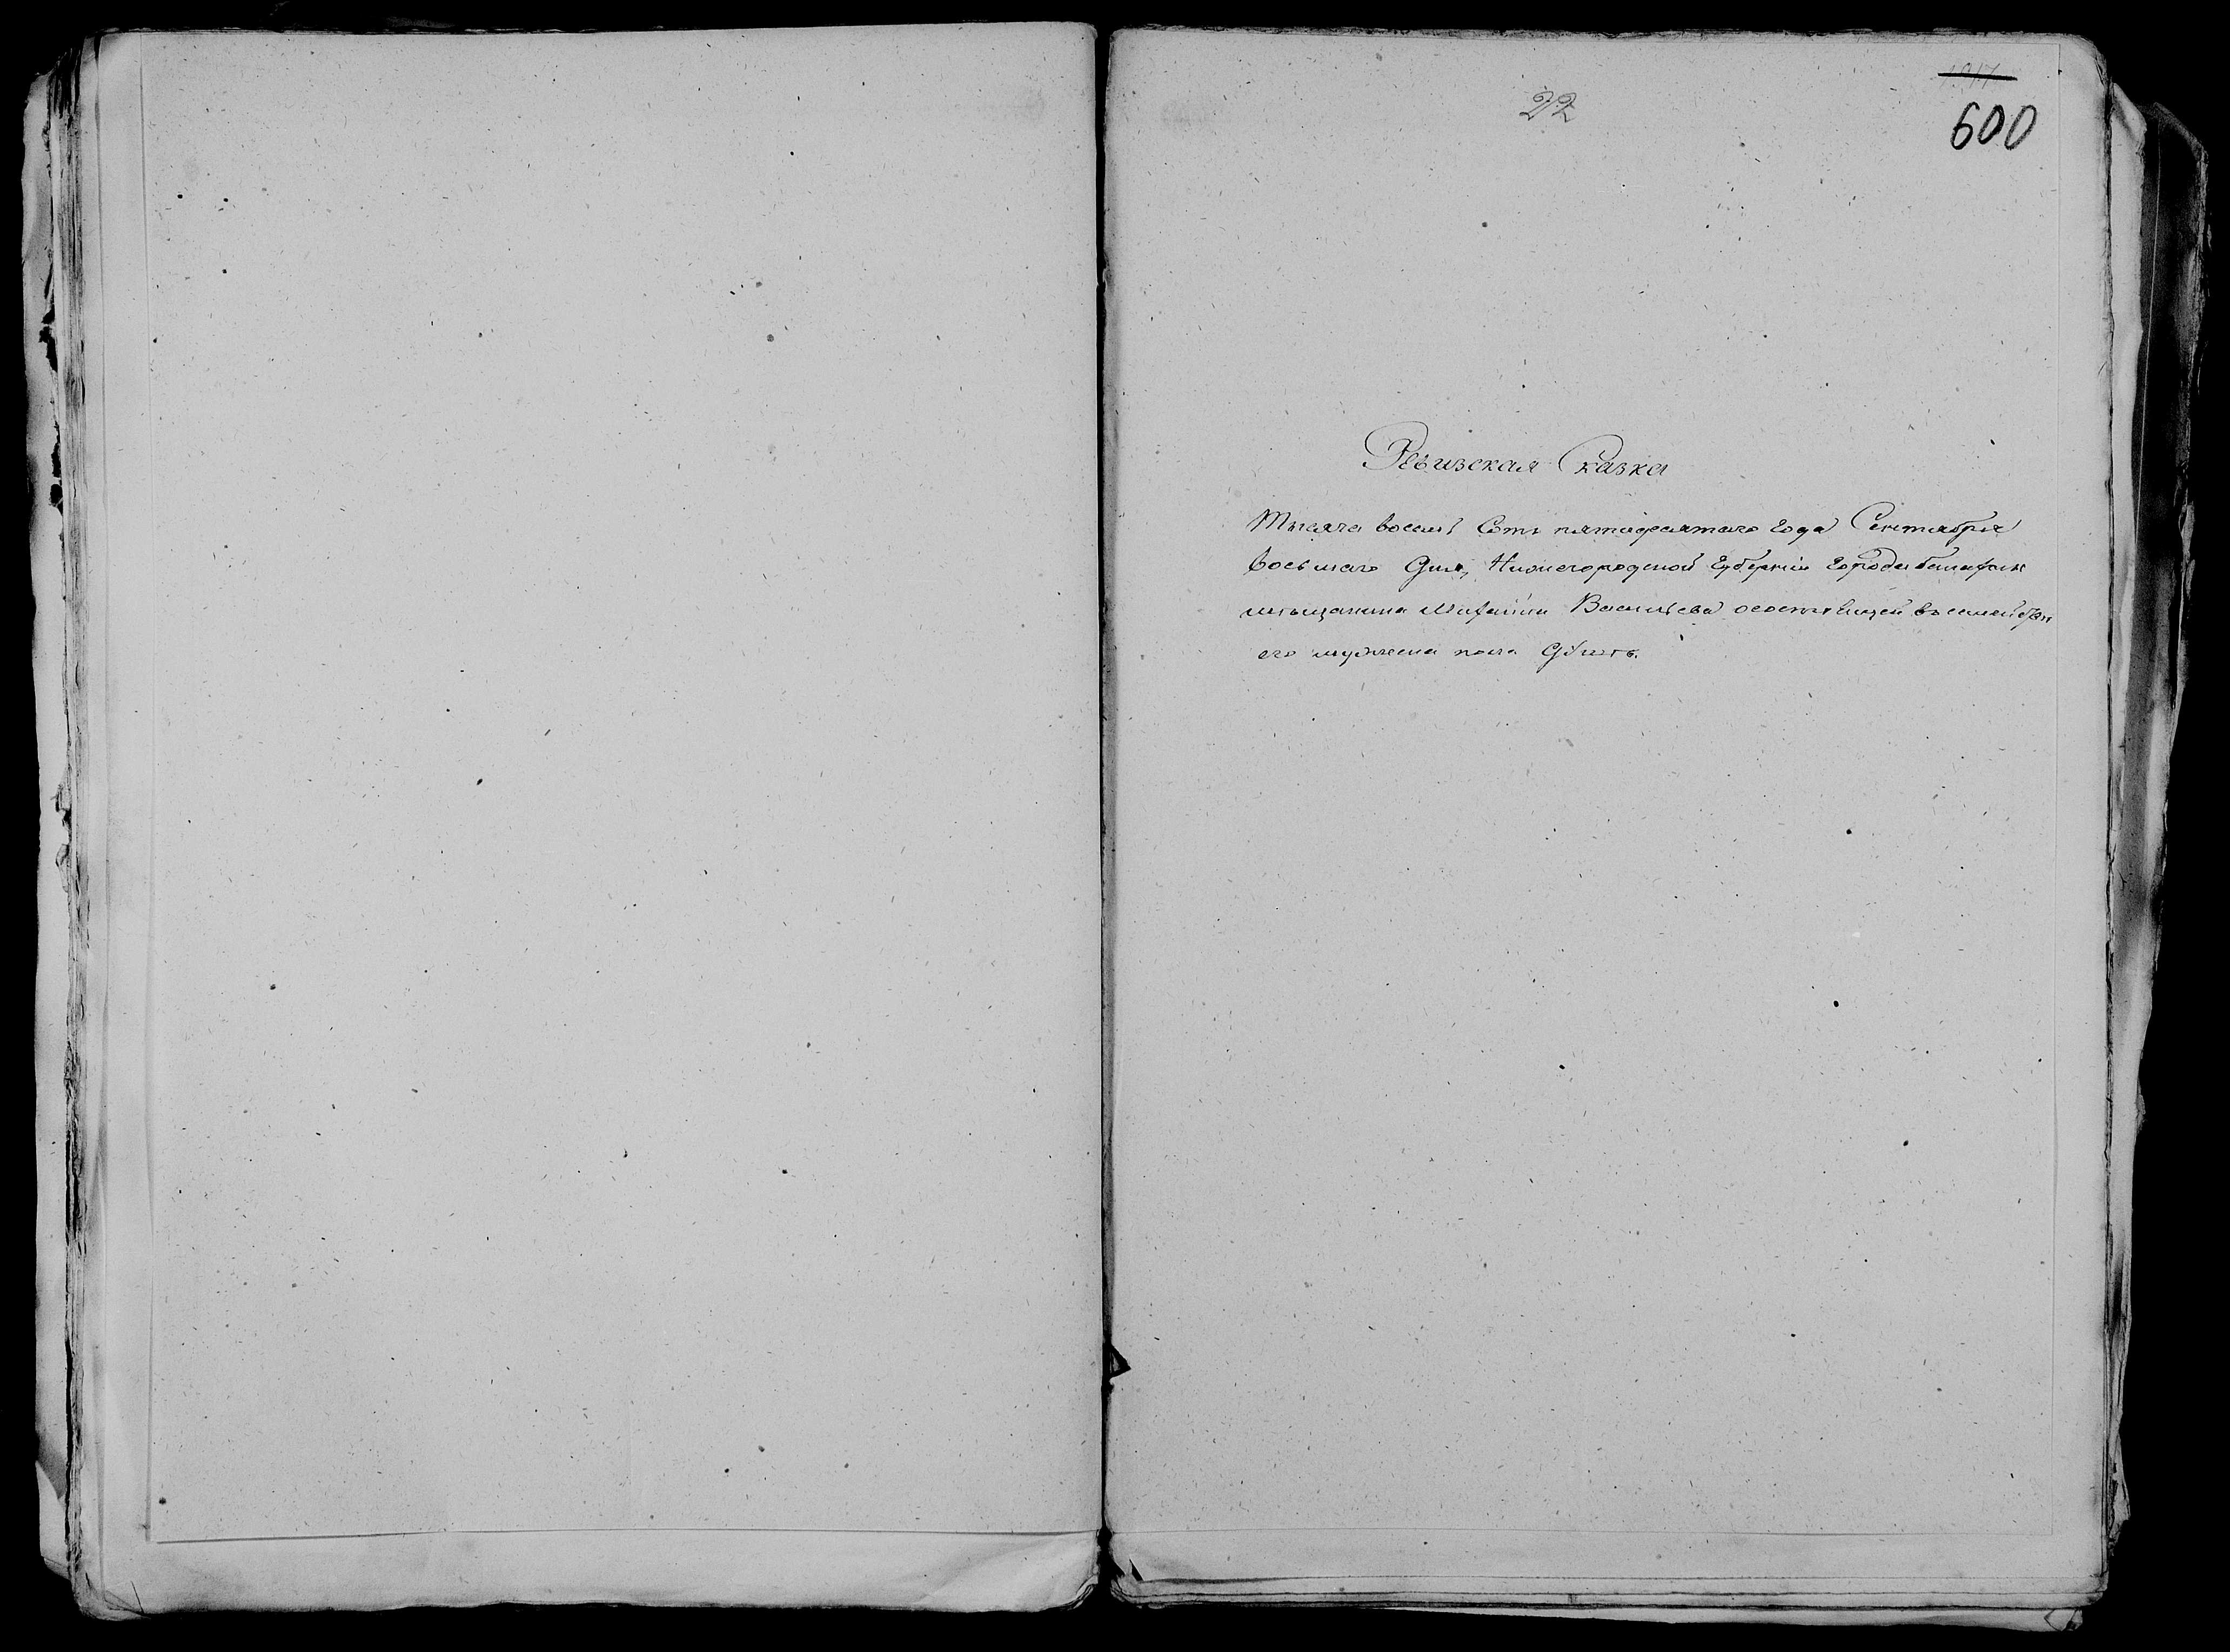 22
600
Ревизская Сказка
Тысяча восемь Сотъ пятидесятаго года Сентября
восьмаго Дня, Нижегородской Губерніи Города Балахны
мѣщанина Васильева о состоящей въ семействѣ
его мужеска пола душъ.